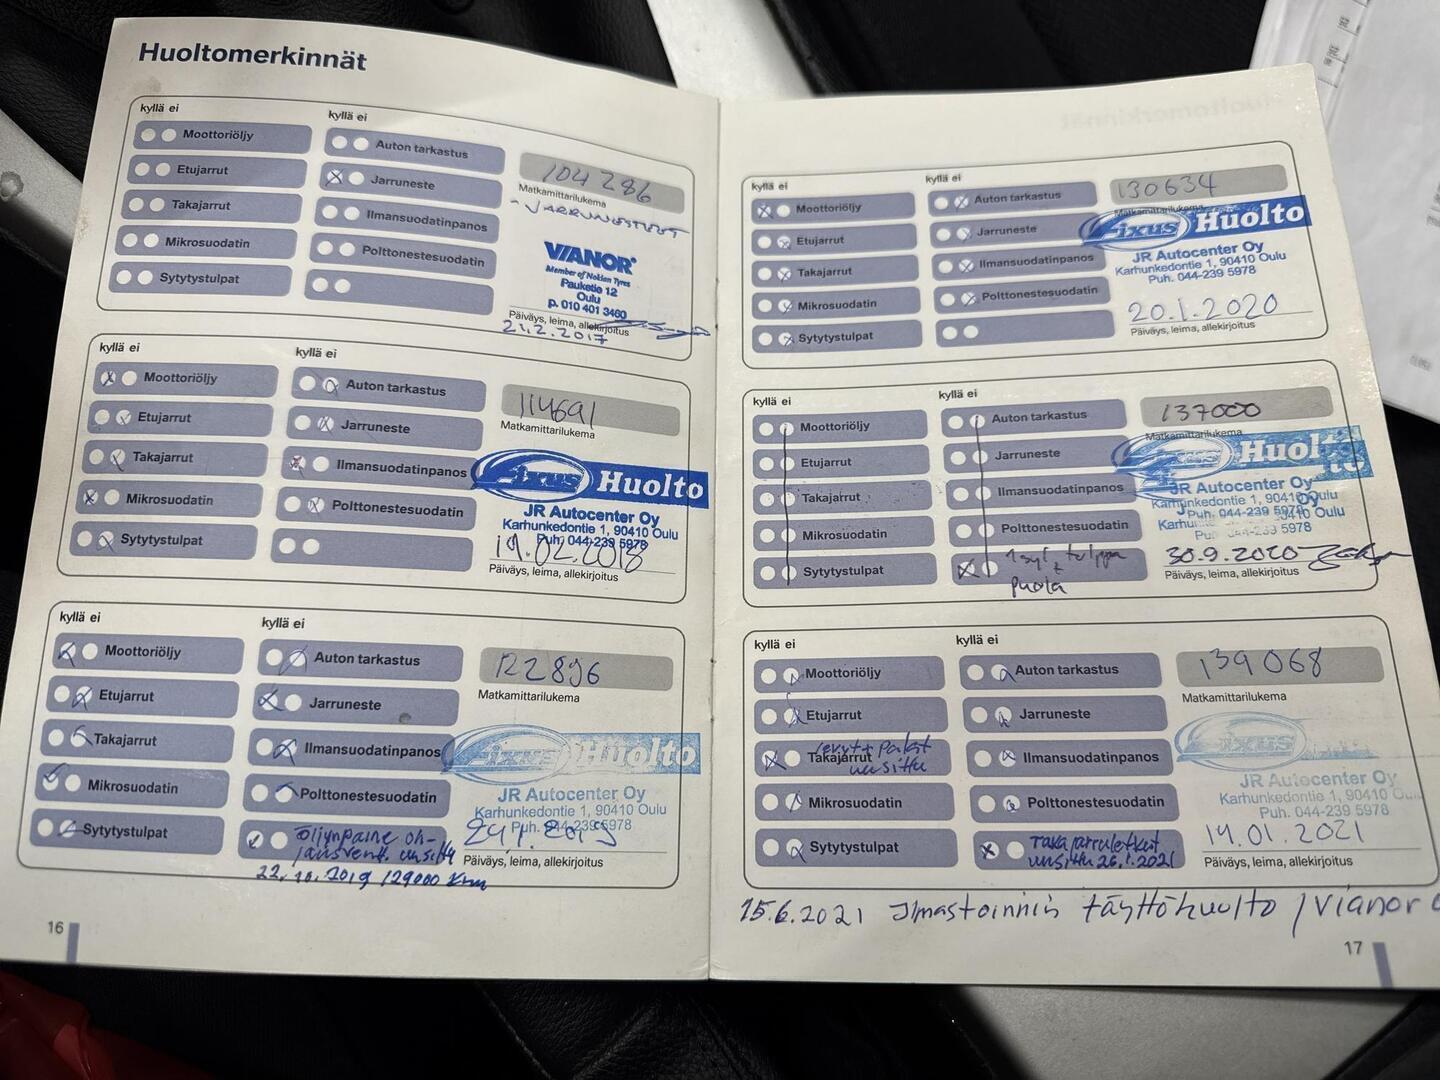 Huoltomerkinnät
kyllä ei
kyllä ei
Moottoriöljy
Auton tarkastus
Etujarrut
Jarruneste
Takajarrut
Ilmansuodatinpanos
Mikrosuodatin
Polttonestesuodatin
Sytytystulpat
104 286
Matkamittarilukema
VIANOR
Member of Nokian Tyres
Pauketie 12
Oulu
p. 010 401 3460
Päiväys, leima, allekirjoitus
21.2.2017
kyllä ei
kyllä ei
Moottoriöljy
Auton tarkastus
Etujarrut
Jarruneste
Takajarrut
Ilmansuodatinpanos
Mikrosuodatin
Polttonestesuodatin
Sytytystulpat
114691
Matkamittarilukema
Fixus Huolto
JR Autocenter Oy
Karhunkedontie 1, 90410 Oulu
Puh. 044-239 5978
19.02.2018
Päiväys, leima, allekirjoitus
kyllä ei
kyllä ei
Moottoriöljy
Auton tarkastus
Etujarrut
Jarruneste
Takajarrut
Ilmansuodatinpanos
Mikrosuodatin
Polttonestesuodatin
Sytytystulpat
öljynpaine oh-
jausvent. uusittu
22.10.2019 129000 km
122896
Matkamittarilukema
Fixus Huolto
JR Autocenter Oy
Karhunkedontie 1, 90410 Oulu
Puh. 044-239 5978
Päiväys, leima, allekirjoitus
16
kyllä ei
kyllä ei
Moottoriöljy
Auton tarkastus
Etujarrut
Jarruneste
Takajarrut
Ilmansuodatinpanos
Mikrosuodatin
Polttonestesuodatin
Sytytystulpat
130634
Matkamittarilukema
Fixus Huolto
JR Autocenter Oy
Karhunkedontie 1, 90410 Oulu
Puh. 044-239 5978
20.1.2020
Päiväys, leima, allekirjoitus
kyllä ei
kyllä ei
Moottoriöljy
Auton tarkastus
Etujarrut
Jarruneste
Takajarrut
Ilmansuodatinpanos
Mikrosuodatin
Polttonestesuodatin
Sytytystulpat
1 syl tulppa
puola
137000
Matkamittarilukema
Huolto
JR Autocenter Oy
Karhunkedontie 1, 90410 Oulu
Puh. 044-239 5978
30.9.2020
Päiväys, leima, allekirjoitus
kyllä ei
kyllä ei
Moottoriöljy
Auton tarkastus
Etujarrut
Jarruneste
levyt + palat
Takajarrut
uusittu
Ilmansuodatinpanos
Mikrosuodatin
Polttonestesuodatin
Sytytystulpat
Takajarruletkut
uusittu 26.1.2021
139068
Matkamittarilukema
Fixus
JR Autocenter Oy
Karhunkedontie 1, 90410 Oulu
Puh. 044-239 5978
14.01.2021
Päiväys, leima, allekirjoitus
15.6.2021 Ilmastoinnin täyttöhuolto / Vianor
17